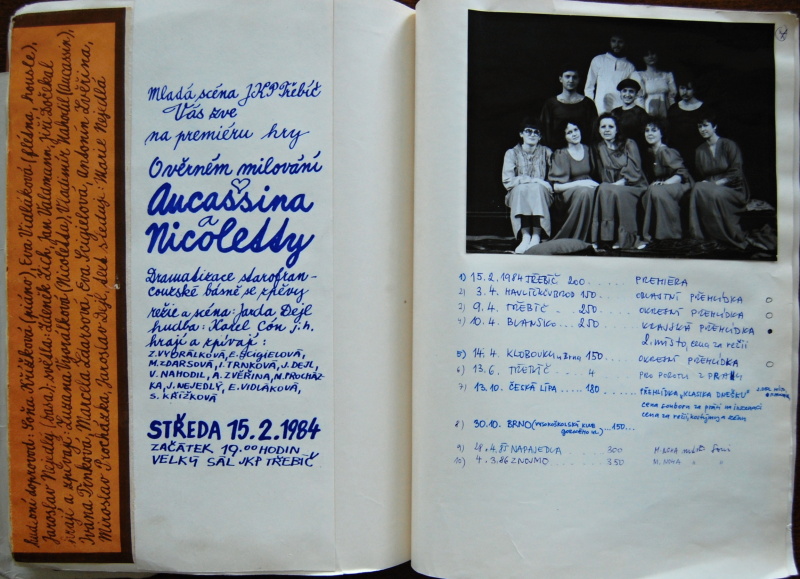 hudební doprovod: Soňa Křížková (piáno), Eva Vidláková (flétna, housle),
Jaroslav Nejedlý (basa), světla: Zdeněk Zich, Jan Veltmann, Jiří Počekal
hrají a zpívají: Zuzana Vyorálková (Nicoletta), Vladimír Nahodil (Aucassin),
Ivana Trnková, Marcela Zdarsová, Eva Scigielová, Antonín Zvěřina,
Miroslav Procházka, Jaroslav Dejl, text sleduje: Marie Nejedlá
Mladá scéna JKP Třebíč
Vás zve
na premiéru hry
O věrném milování
Aucassina
a
Nicoletty
Dramatizace starofran-
couzské básně se zpěvy
režie a scéna: Jarda Dejl
hudba: Karel Cón j.h.
hrají a zpívají:
Z.VYORÁLKOVÁ, E.SCIGIELOVÁ,
M.ZDARSOVÁ, I.TRNKOVÁ, J.DEJL,
V.NAHODIL, A.ZVĚŘINA, M.PROCHÁZ-
KA, J.NEJEDLÝ, E.VIDLÁKOVÁ,
S.KŘÍŽKOVÁ
STŘEDA 15.2.1984
ZAČÁTEK 19.00 HODIN
VELKÝ SÁL JKP TŘEBÍČ
1) 15.2.1984 TŘEBÍČ 200 ...... PREMIÉRA
2) 3.4. HAVLÍČKŮV BROD 150 ..... OBLASTNÍ PŘEHLÍDKA
3) 9.4. TŘEBÍČ . 250 ..... OKRESNÍ PŘEHLÍDKA
4) 10.4. BLANSKO ... 250 ..... KRAJSKÁ PŘEHLÍDKA
2. místo, cena za režii
5) 14.4. KLOBOUKY u Brna 150 ..... OKRESNÍ PŘEHLÍDKA
6) 13.6. TŘEBÍČ .. 4 ..... PRO POROTU Z PRAHY
7) 13.10. ČESKÁ LÍPA ..... 180 ..... PŘEHLÍDKA "KLASIKA DNEŠKU"
cena souboru za práci na inscenaci
cena za režii, kostýmy a scénu
8) 30.10. BRNO (VYSOKOŠKOLSKÝ KLUB ... 150...
9) 28.4.85 NAPAJEDLA ..... 300
10) 4.3.86 ZNOJMO ..... 350